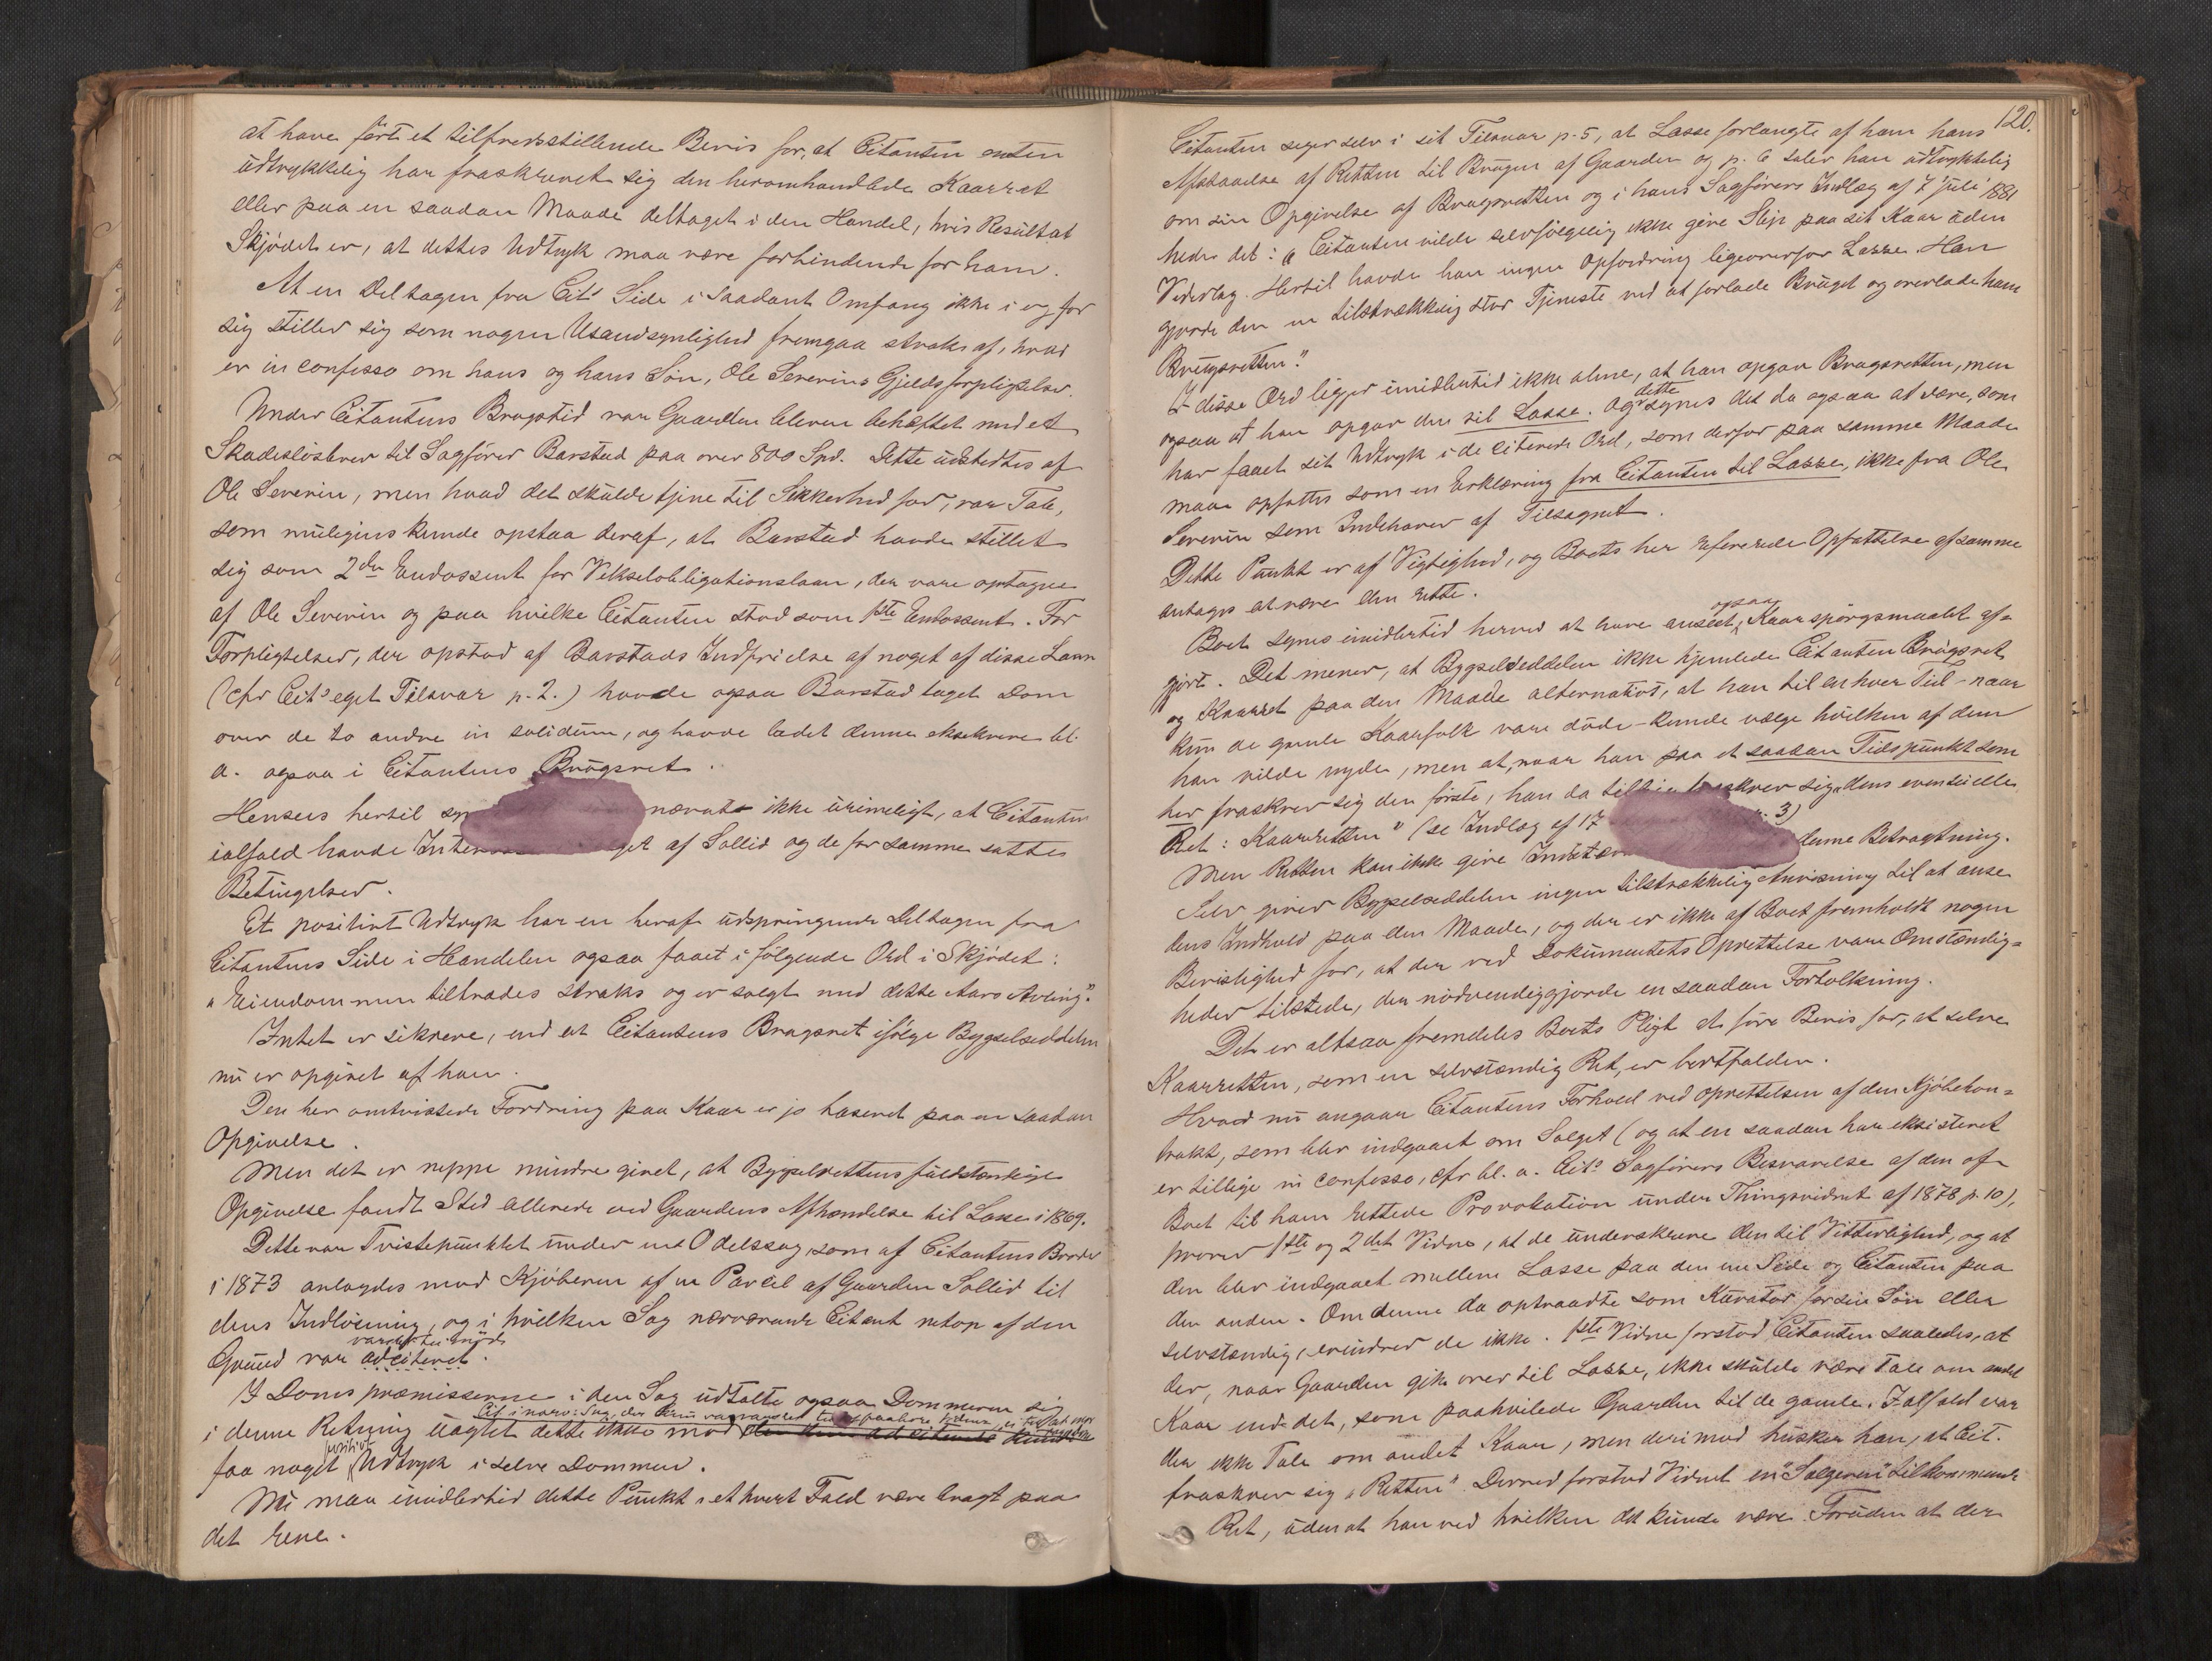 at have ført et tilfredsstillende Bevis for, at Citanten enten
udtrykkelig har fraskrevet sig den heromhandlede Kaarret
eller paa en saadan Maade deltaget i den Handel, hvis Resultat
Skjødet er, at dettes Udtryk maa være forbindende for ham.
At en Deltagen fra Cits Side i saadant Omfang ikke i og for
sig stiller sig som nogen Usandsynlighed fremgaa straks af, hvad
er in confesso om hans og hans Søn, Ole Severins Gjeldsforpligtelser.
Under Citantens Brugstid var Gaarden bleven behæftet med et
Skadesløsbrev til Sagfører Barstad paa over 800 Spd. Dette udstedtes af
Ole Severin, men hvad det skulde tjene til Sikkerhed for, var Tab,
som muligens kunde opstaa deraf, at Barstad havde stillet
sig som 2den Endossent for Vekselobligationslaan, der vare optagne
af Ole Severin og paa hvilke Citanten stod som 1ste Endossent. For
Forpligtelser, der opstod af Barstads Indfrielse af noget af disse Laan
(cfr Cits eget Tilsvar p. 2.) havde ogsaa Barstad taget Dom
over de to andre in solidum, og havde ladet denne eksekvere bl.
a. ogsaa i Citantens Brugsret.
Henseet hertil nævnte ikke urimeligt, at Citanten
ialfald havde af Sollid og de for samme satte
Betingelser.
Et positivt Udtryk har en heraf udspringende Deltagen fra
Citantens Side i Handelen ogsaa faaet i følgende Ord i Skjødet:
"Eiendommen tiltrædes straks og er solgt med dette Aars Avling".
Intet er sikrere, end at Citantens Brugsret ifølge Bygselseddelen
nu er opgivet af ham.
Den her omtvistede Fordring paa Kaar er jo baseret paa en saadan
Opgivelse.
Men det er neppe mindre givet, at Bygselrettens fuldstændige
Opgivelse fandt Sted allerede ved Gaardens Afhændelse til Lasse i 1869.
Dette var Tvistepunktet under en Odelssag, som af Citantens Broder
i 1873 anlagdes mod Kjøberen af en Parcel af Gaarden Sollid til
dens Indløsning, og i hvilken Sag nærværende Citant netop af den
Grund var adciteret.
I Domspræmisserne i den Sag udtalte ogsaa Dommeren sig
i denne Retning uagtet dette ikke mod den kun adciterede kunde
Cit. i nærv. Sag, der kun var varslet til at paahøre Vidner
faa noget positivt Udtryk i selve Dommen.
Nu maa imidlertid dette Punkt i ethvert Fald være bragt paa
det Rene.
120.
Citanten siger selv i sit Tilsvar p. 5, at Lasse forlangte af ham hans
Afstaaelse af Retten til Brugen af Gaarden og p. 6 taler han udtrykkelig
om sin Opgivelse af Brugsretten og i hans Sagførers Indlæg af 7 juli 1881
heder det: "Citanten vilde selvfølgelig ikke give Slip paa sit Kaar uden
Vederlag. Hertil havde han ingen Opfordring ligeoverfor Lasse. Han
gjorde den en tilstrækkelig stor Tjeneste ved at forlade Bruget og overlade ham
Brugsretten."
I disse Ord ligger imidlertid ikke alene, at han opgav Brugsretten, men
ogsaa at han opgav den til Lasse. Og dette synes det da ogsaa at være, som
har faaet sit Udtryk i de citerede Ord, som derfor paa samme Maade
maa opfattes som en Erklæring fra Citanten til Lasse, ikke fra Ole
Severin som Indehaver af Tilsagnet.
Dette Punkt er af Vigtighed, og Boets her refererede Opfattelse af samme
antages at være den rette.
Boet synes imidlertid herved at have anseet ogsaa Kaarspørgsmaalet af-
gjort. Det mener, at Bygselseddelen ikke hjemlede Citanten Brugsret
og Kaarret paa den Maade alternativt, at han til enhver Tid - naar
kun de gamle Kaarfolk vare døde - kunde vælge hvilken af dem
han vilde nyde, men at, naar han paa et saadan Tidspunkt som
her fraskrev sig den første, han da tillige fraskrev sig "dens eventuelle
Ret: Kaarretten" (se Indlæg af 17 3)
Men Retten kan ikke give denne Betragtning.
Selv giver Bygselseddelen ingen tilstrækkelig Anvisning til at anse
dens Indhold paa den Maade, og der er ikke af Boet fremholdt nogen
Bevislighed for, at der ved Dokumentets Oprettelse vare Omstændig-
heder tilstede, der nødvendiggjorde en saadan Fortolkning.
Det er altsaa fremdeles Boets Pligt at føre Bevis for, at selve
Kaarretten, som en selvstændig Ret, er bortfalden.
Hvad nu angaar Citantens Forhold ved Oprettelsen af den Kjøbekon-
trakt, som blev indgaaet om Salget (og at en saadan har eksisteret
er tillige in confesso, cfr bl. a. Cits Sagførers Besvarelse af den af
Boet til ham rettede Provokation under Thingsvidnet af 1878 p. 10),
prover 1ste og 2det Vidne, at de underskreve den til Vitterlighed, og at
den blev indgaaet mellem Lasse paa den ene Side og Citanten paa
den anden. Om denne da optraadte som Kurator for sin Søn eller
selvstændig, erindrer de ikke. 1ste Vidne forstod Citanten saaledes, at
der, naar Gaarden gik over til Lasse, ikke skulde være Tale om andet
Kaar end det, som paahvilede Gaarden til de gamle. Ialfald var
der ikke Tale om andet Kaar, men derimod husker han, at Cit.
fraskrev sig "Retten". Derved forstod Vidnet en "Sælgeren" tilkommende
Ret, uden at han ved hvilken det kunde være. Foruden at der